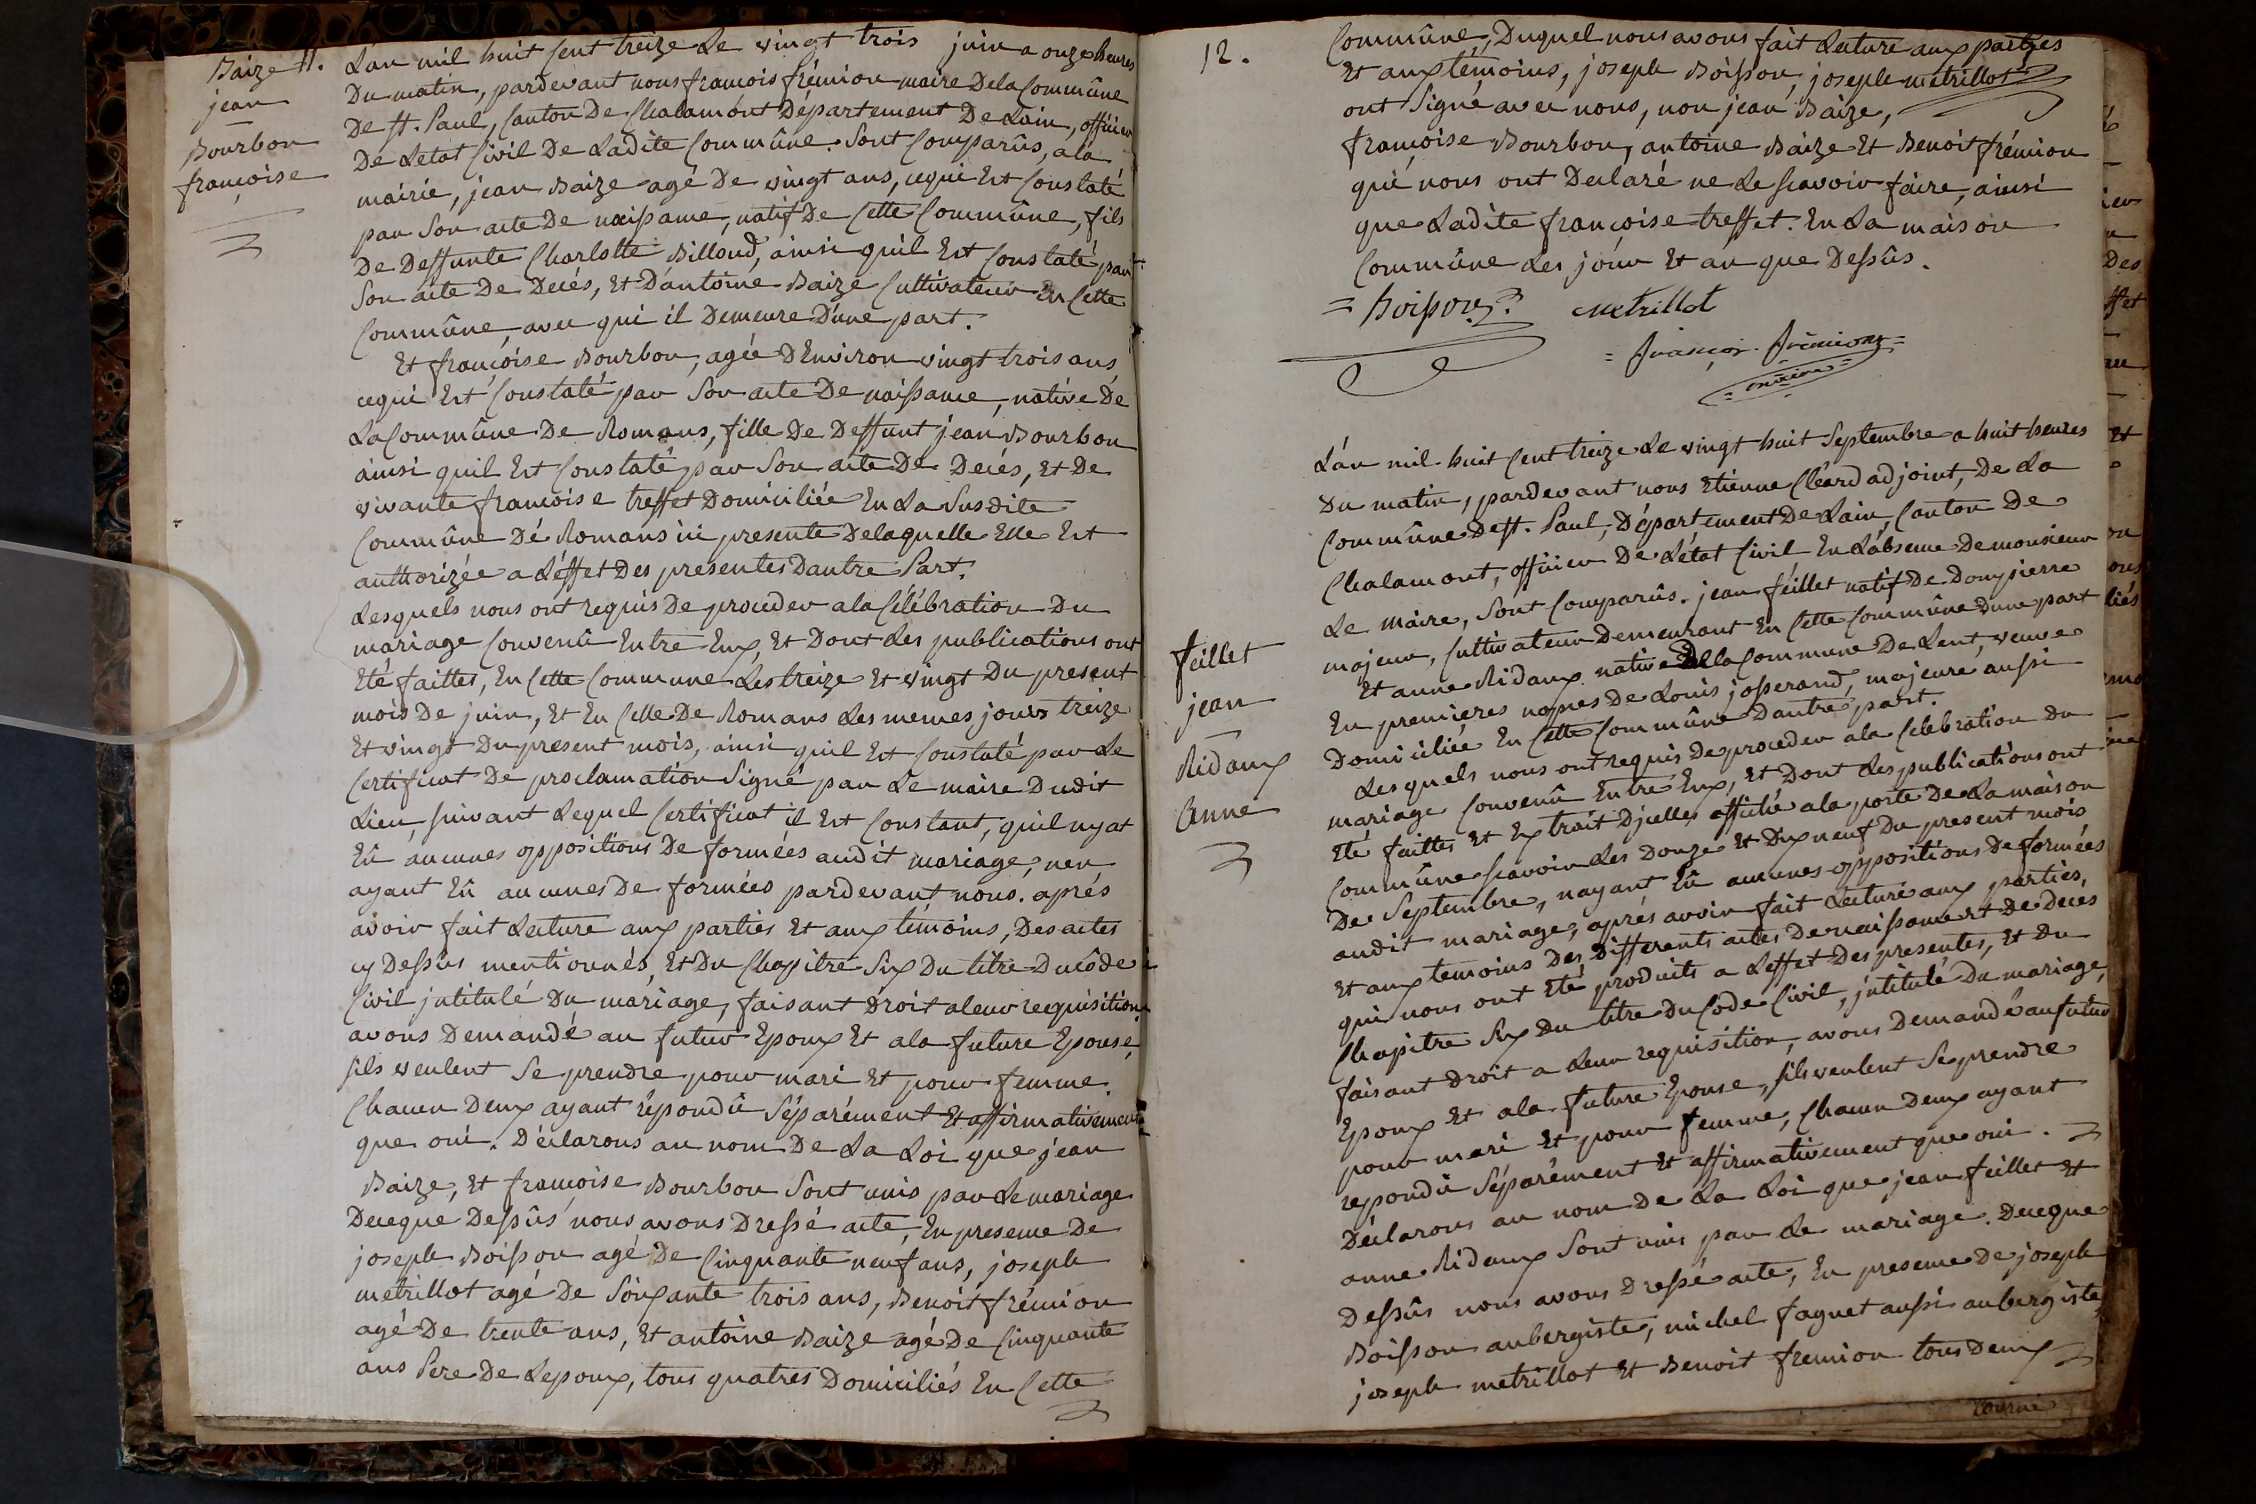 Baize 11.
jean
Bourbon
françoise
L'an mil huit cent treize Le vingt trois juin a onze heures
Du matin, pardevant nous françois frémion maire Dela Commûne
De st. Paul, Canton De Chalamont Département De L'ain, officier
De Letat Civil De Ladite Commûne. Sont Comparûs, a la
mairie, jean Baize agé De vingt ans, cequi Est Constaté
par Son acte De naissance, natif De Cette Commûne, fils
De Deffunte Charlotte Billoud, ainsi quil Est Constaté par
Son acte De Decés, Et D'antoine Baize Cultivateur En Cette
Commûne avec qui il Demeure D'une part.
Et françoise Bourbon, agée D'Environ vingt trois ans
cequi Est Constaté par Son acte De naissance, native De
La Commûne De Romans, fille De Deffunt jean Bourbon
ainsi quil Est Constaté par Son acte De Decés, Et De
vivante françoise treffet Domiciliée En La Susdite
Commûne Dé Romans ici presente Delaquelle Elle Est
authorizée a L'éffet Des presentes Dautre Part.
Lesquels nous ont requis De proceder a la Célébration Du
mariage Convenû Entre Eux, Et Dont Les publications ont
Eté faittes, En Cette Commune Les treize Et vingt Du present
mois De juin, Et En Celle De Romans Les memes jours treize
Et vingt Du present mois, ainsi quil Est Constaté par Le
Certificat De proclamation Signé par Le maire Dudit
Lieu, suivant Lequel Certificat il Est Constant, quil ny at
Eû aucunes oppositions De formées audit mariage, nen
ayant Eû aucunes De formées pardevant nous. aprés
avoir fait Lecture aux parties Et aux témoins, Des actes
cy Dessus mentionnés, Et Du Chapitre Six Du titre Du côde
Civil jntitulé Du mariage, faisant Droit a leur requisition
avons Demandé au futur Epoux Et a la future Epouse,
s'ils veulent Se prendre pour mari Et pour femme.
Chacun Deux ayant répondû Séparément Et affirmativement
que oui. Déclarons au nom De La Loi que jean
Baize, Et françoise Bourbon Sont unis par Le mariage
De ceque Dessûs nous avons Dressé acte, En presence De
joseph Boisson agé De Cinquante neuf ans, joseph
metrillot agé De Soixante trois ans, Benoit frémion
agé De trente ans, Et antoine Baize agé De Cinquante
ans Pere De L'epoux, tous quatres Domiciliés En Cette
12.
Commûne, Duquel nous avons fait Lecture aux parties
Et aux témoins, joseph Boisson, joseph metrillot
ont Signé avec nous, non jean Baize,
françoise Bourbon, antoine Baize Et Benoit frémion
qui nous ont Declaré ne Le scavoir faire, ainsi
que Ladite françoise treffet. En La maison
Commûne Les jour Et an que Dessûs.
= boisson metrillot
= françois frémion =
= maire =
feillet
jean
Ridaux
Anne
L'an mil huit Cent treize Le vingt huit Septembre a huit heures
Du matin, pardevant nous Etienne Cléard adjoint, De La
Commûne De st. Paul, Département De Lain, Canton De
Chalamont, officier De L'état Civil En L'absence De monsieur
Le maire, Sont Comparûs. jean feillet natif De Dompierre
majeur, Cultivateur Demeurant En Cette Commûne Dune part
Et anne Ridaux native De la Commune De Lent, veuve
En premieres nopces De Louis josserand, majeure aussi
Domiciliée En Cette Commûne Dautre part.
Lesquels nous ont requis De proceder a la Celebration Du
mariage Convenû Entre Eux, Et Dont Les publications ont
Eté faittes Et Extrait Djcelles affiché a la porte De La maison
Commûne scavoir Les Douze Et Dix neuf Du present mois
De Septembre, nayant Eû aucunes oppositions De formées
audit mariage, aprés avoir fait Lecture aux parties,
Et aux temoins Des Differents actes De naissance et De Decés
qui nous ont Eté produits a L'effet Des presentes, Et Du
Chapitre Six Du titre Du Code Civil, jntitulé Du mariage,
faisant Droit a Leur requisition, avons Demandé au futur
Epoux Et a la future Epouse, s'ils veulent Se prendre
pour mari Et pour femme, Chacun Deux ayant
repondû Séparément Et affirmativement que oui.
Déclarons au nom De La Loi que jean feillet Et
anne Ridaux Sont unis par Le mariage. De ceque
Dessûs nous avons Dressé acte, En presence De joseph
Boisson aubergiste, michel faguet aussi aubergiste,
joseph metrillot Et Benoit fremion tous Deux
tourné